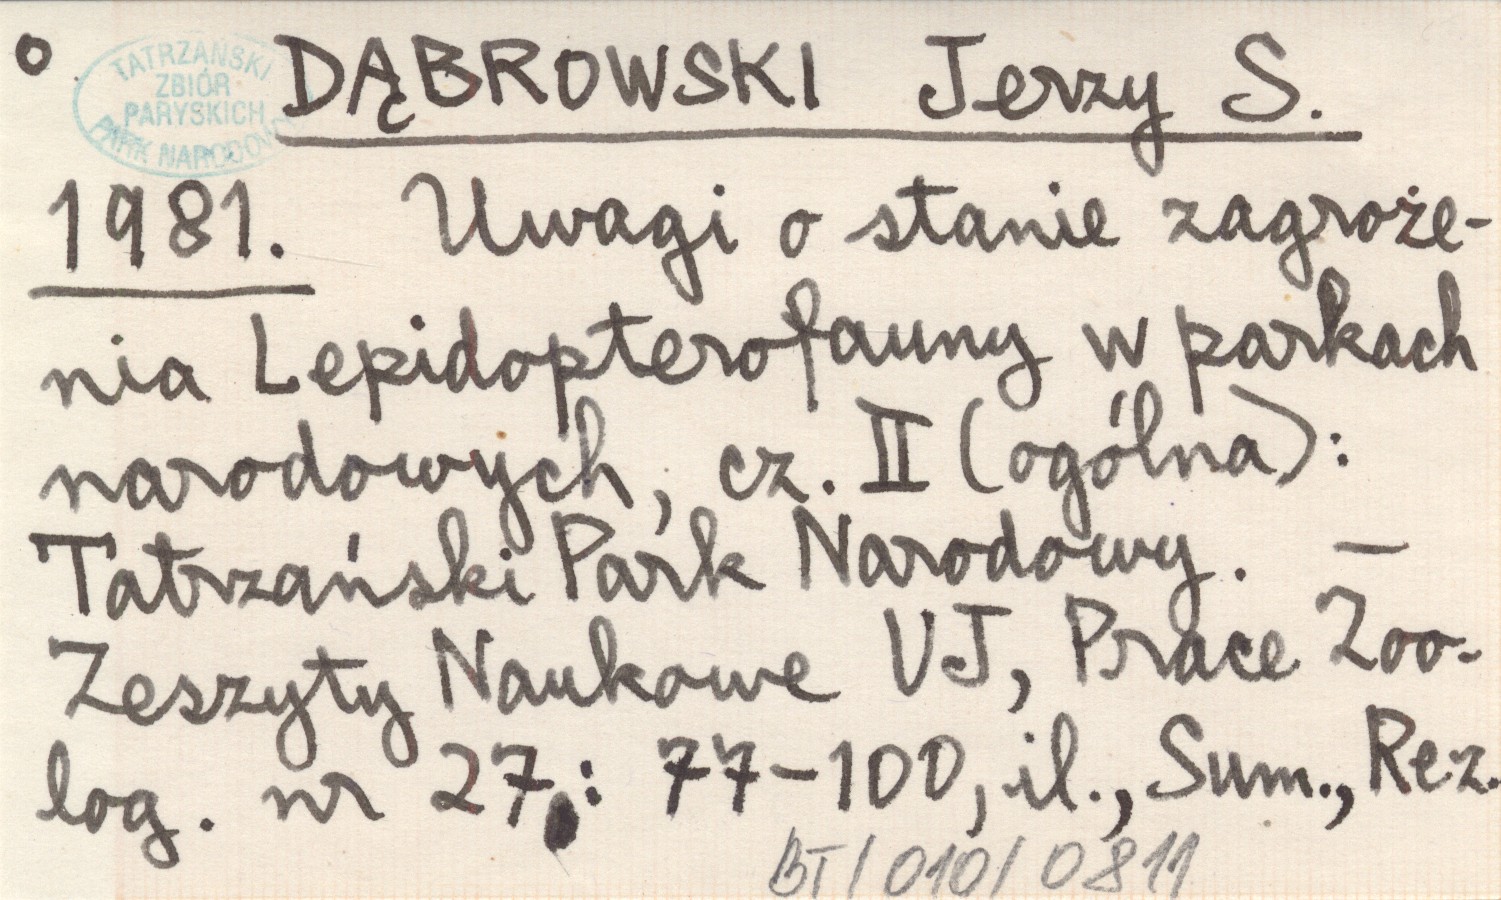 o DĄBROWSKI Jerzy S.
TATRZAŃSKI
ZBIÓR
PARYSKICH
PARK NARODOWY
1981. Uwagi o stanie zagroże-
nia Lepidopterofauny w parkach
narodowych, cz. II (ogólna):
Tatrzański Park Narodowy. —
Zeszyty Naukowe UJ, Prace Zoo-
log. nr 27,: 77-100, il., Sum., Rez.
BT/010/0811